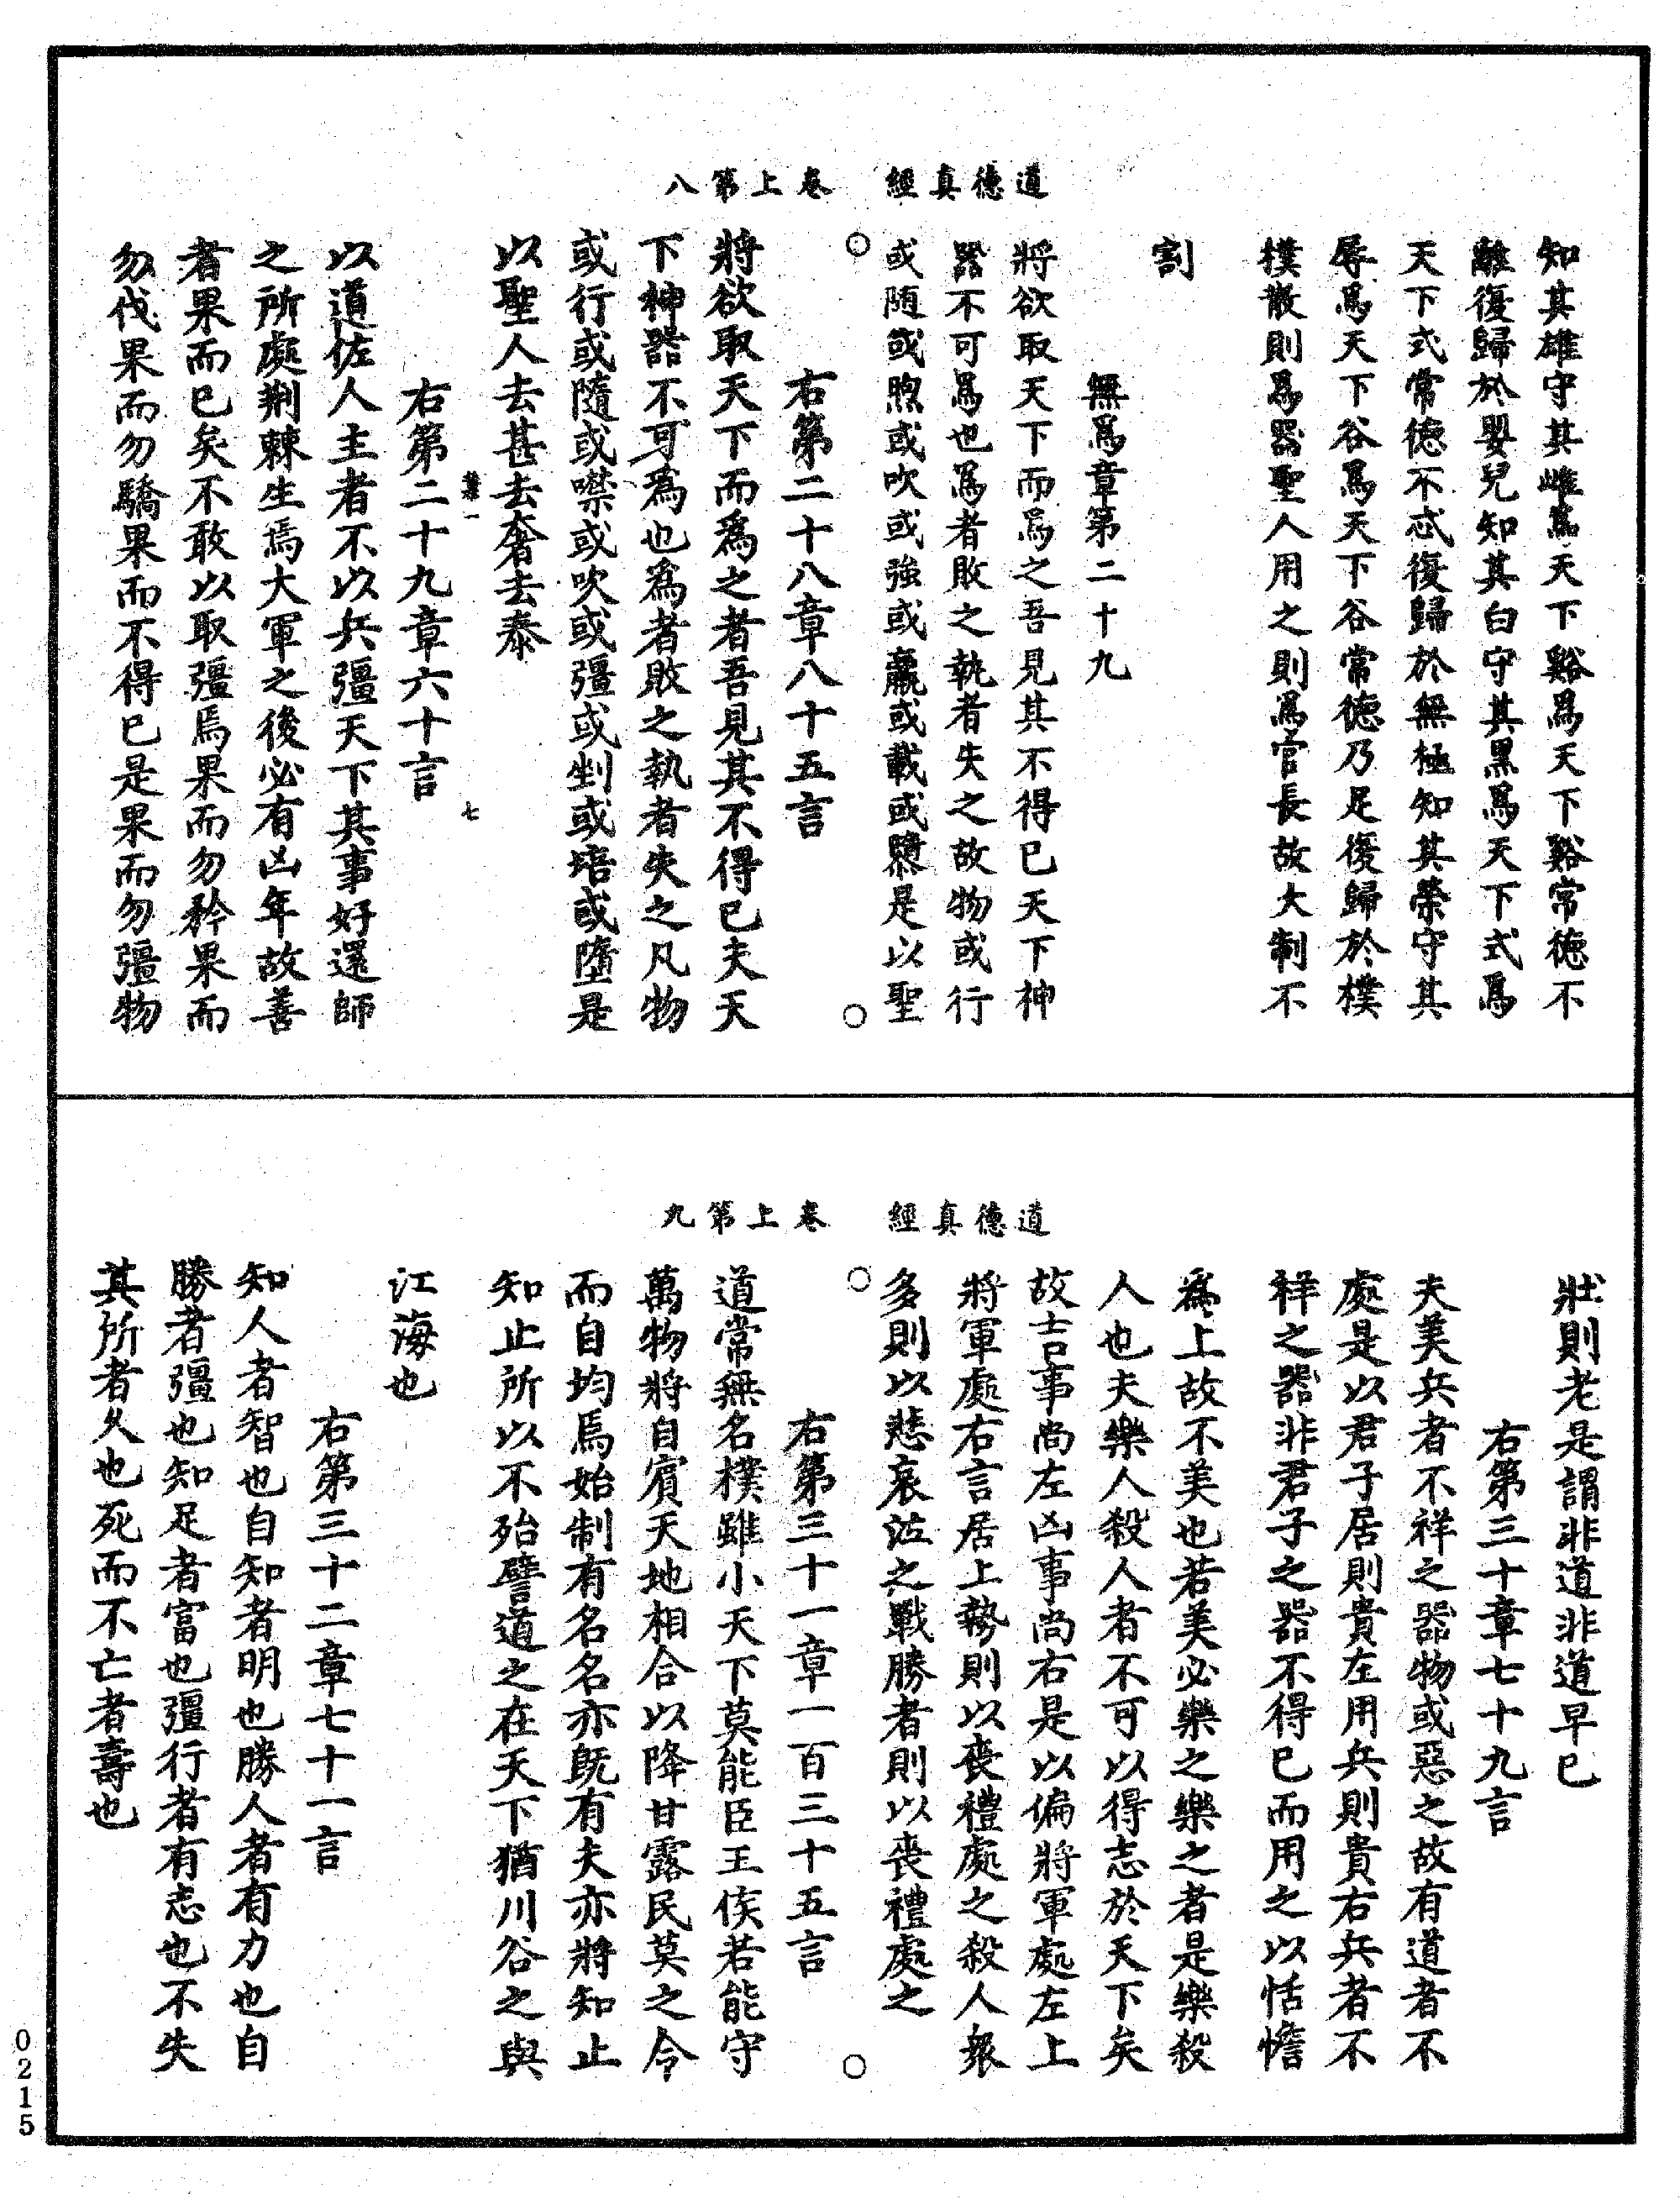 道德真經 卷上第八
知其雄守其雌爲天下谿爲天下谿常德不
離復歸於嬰兒知其白守其黑爲天下式爲
天下式常德不忒復歸於無極知其榮守其
辱爲天下谷爲天下谷常德乃足復歸於樸
樸散則爲器聖人用之則爲官長故大制不
割
無爲章第二十九
將欲取天下而爲之吾見其不得已天下神
器不可爲也爲者敗之執者失之故物或行
或随或煦或吹或強或羸或載或隳是以聖
右第二十八章八十五言
將欲取天下而爲之者吾見其不得已夫天
下神器不可爲也爲者敗之執者失之凡物
或行或隨或噤或吹或彊或剉或培或墮是
以聖人去甚去奢去泰
七
右第二十九章六十言
以道佐人主者不以兵彊天下其事好還師
之所處荆棘生焉大軍之後必有凶年故善
者果而已矣不敢以取彊焉果而勿矜果而
勿伐果而勿驕果而不得已是果而勿彊物
道德真經 卷上第九
壯則老是謂非道非道早已
右第三十章七十九言
夫美兵者不祥之器物或惡之故有道者不
處是以君子居則貴左用兵則貴右兵者不
祥之器非君子之器不得已而用之以恬憺
爲上故不美也若美必樂之樂之者是樂殺
人也夫樂人殺人者不可以得志於天下矣
故吉事尚左凶事尚右是以偏將軍處左上
將軍處右言居上勢則以喪禮處之殺人衆
多則以悲哀泣之戰勝者則以喪禮處之
右第三十一章一百三十五言
道常無名樸雖小天下莫能臣王侯若能守
萬物將自賓天地相合以降甘露民莫之令
而自均焉始制有名名亦既有夫亦將知止
知止所以不殆譬道之在天下猶川谷之與
江海也
右第三十二章七十一言
知人者智也自知者明也勝人者有力也自
勝者彊也知足者富也彊行者有志也不失
其所者久也死而不亡者壽也
0215